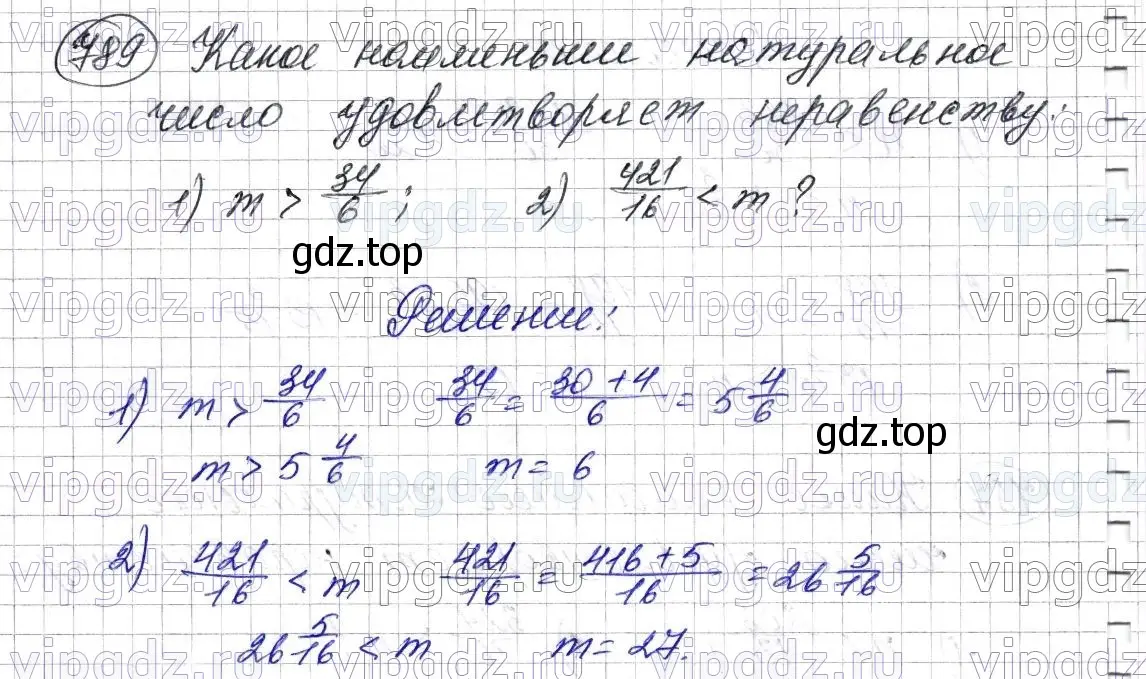 789 Какое наименьши натуральное
число удовлетворяет неравенству:
1) m > 34/6 ; 2) 421/16 < m ?
gdz.top
Решение:
1) m > 34/6 34/6 = 30+4/6 = 5 4/6
gdz.top
m > 5 4/6 m = 6
2) 421/16 < m 421/16 = 416+5/16 = 26 5/16
26 5/16 < m m = 27.
vipgdz.ru